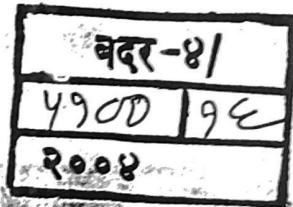 बदर-४/
५१०० १६
२००४